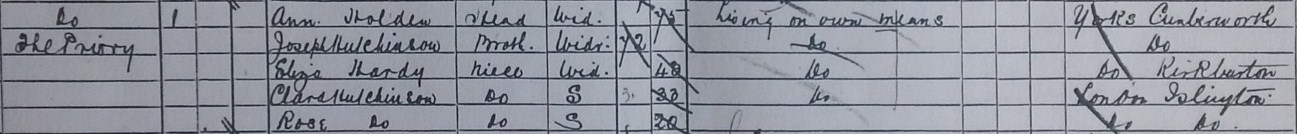 Do 1 Ann Holden Head Wid. 75 Living on own means Yorks Cumberworth
The Priory Joseph Hutchinson Broth. Widr. 72 Do Do
Eliza Hardy Niece Wid. 48 Do Do Kirkburton
Clara Hutchinson Do S Do London Islington
Rose Do Do S 20 Do Do